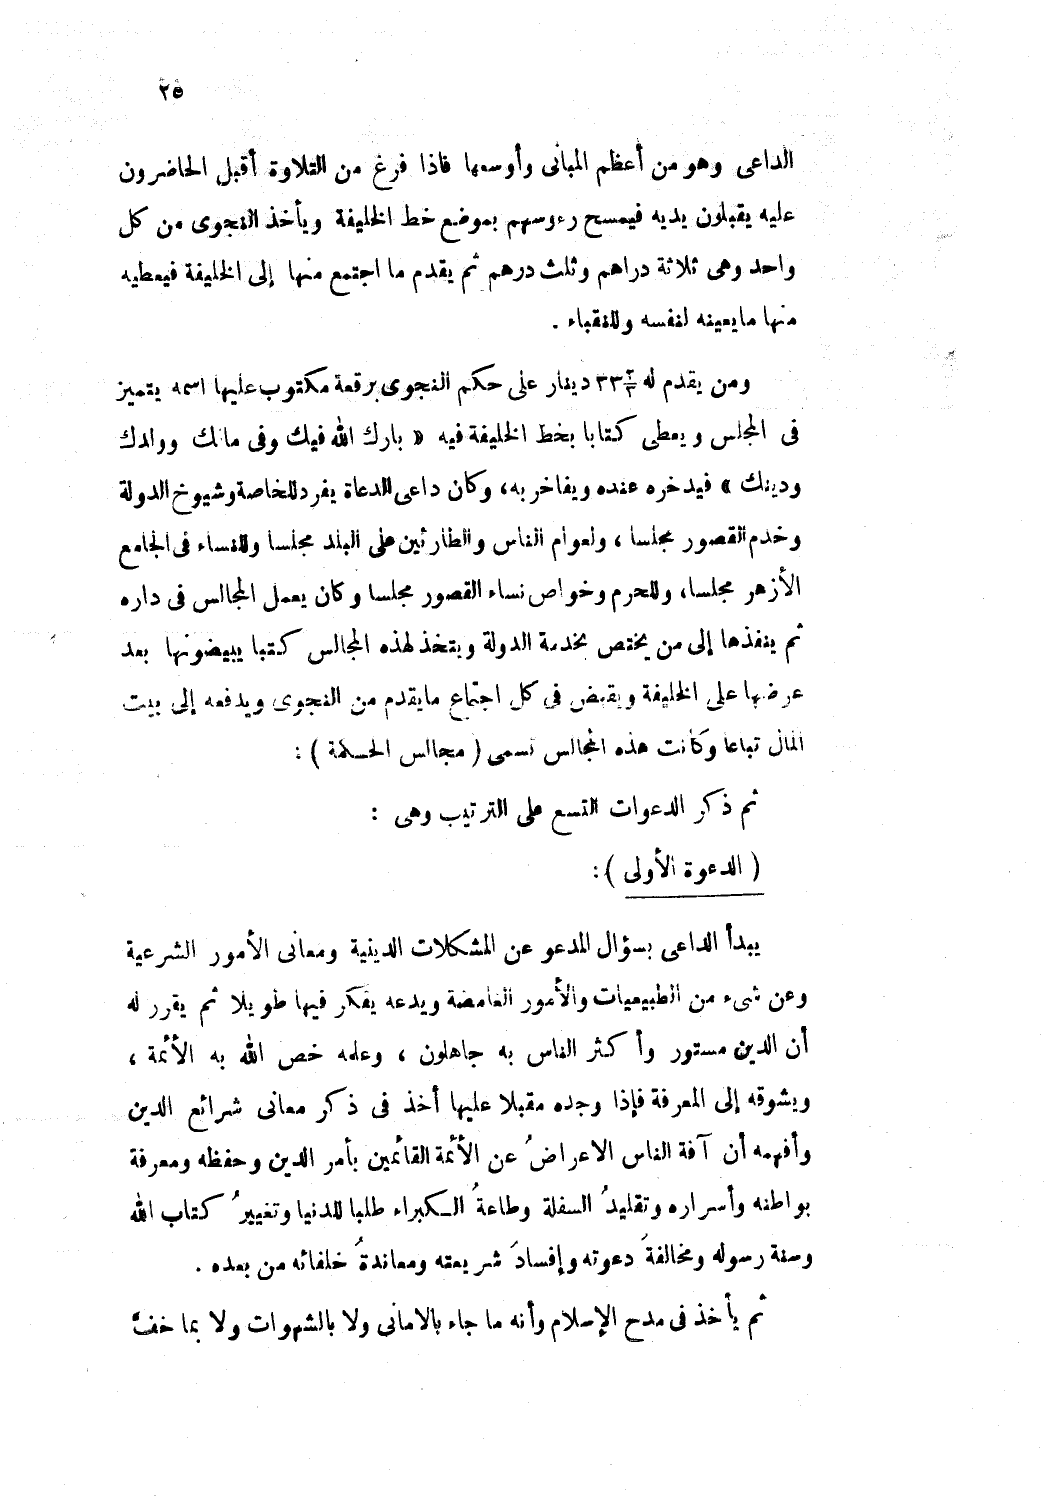 ٢٥
الداعى وهو من أعظم المبانى وأوسعها فاذا فرغ من التلاوة أقبل الحاضرون
عليه يقبلون يديه فيمسح رءوسهم بموضع خط الخليفة ويأخذ النجوى من كل
واحد وهى ثلاثة دراهم وثلث درهم ثم يقدم ما اجتمع منها إلى الخليفة فيعطيه
منها مايعينه لنفسه وللنقباء .
ومن يقدم له ٣٣ دينار على حكم النجوى برقعة مكتوب عليها اسمه يتميز
فى المجلس ويعطى كتابا بخط الخليفة فيه « بارك الله فيك وفى مالك وولدك
ودينك » فيدخره عنده ويفاخر به، وكان داعى الدعاة يفرد للخاصة وشيوخ الدولة
وخدم القصور مجلسا ، ولعوام الناس والطارئين على البلد مجلسا وللنساء فى الجامع
الأزهر مجلسا، وللحرم وخواص نساء القصور مجلسا وكان يعمل المجالس فى داره
ثم ينفذها إلى من يختص بخدمة الدولة ويتخذ لهذه المجالس كتبا يبيضونها بعد
عرضها على الخليفة ويقبض فى كل اجتماع مايقدم من النجوى ويدفعه إلى بيت
المال تباعا وكانت هذه المجالس تسمى ( مجالس الحكمة ) :
ثم ذكر الدعوات التسع على الترتيب وهى :
( الدعوة الأولى ) :
يبدأ الداعى بسؤال المدعو عن المشكلات الدينية ومعانى الأمور الشرعية
وعن شىء من الطبيعيات والأمور الغامضة ويدعه يفكر فيها طويلا ثم يقرر له
أن الدين مستور وأكثر الناس به جاهلون ، وعلمه خص الله به الأئمة ،
ويشوقه إلى المعرفة فإذا وجده مقبلا عليها أخذ فى ذكر معانى شرائع الدين
وأفهمه أن آفة الناس الاعراضُ عن الأئمة القائمين بأمر الدين وحفظه ومعرفة
بواطنه وأسراره وتقليدُ السفلة وطاعةُ الكبراء طلبا للدنيا وتغييرُ كتاب الله
وسنة رسوله ومخالفةَ دعوته وإفسادَ شريعته ومعاندةُ خلفائه من بعده .
ثم يأخذ فى مدح الإسلام وأنه ما جاء بالامانى ولا بالشهوات ولا بما خفّ